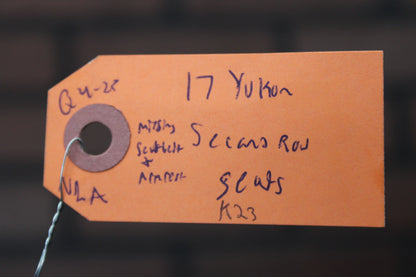 Q 4-28
17 Yukon
Missing
Seatbelt
+
Armrest
Second Row
Seats
NLA
K23